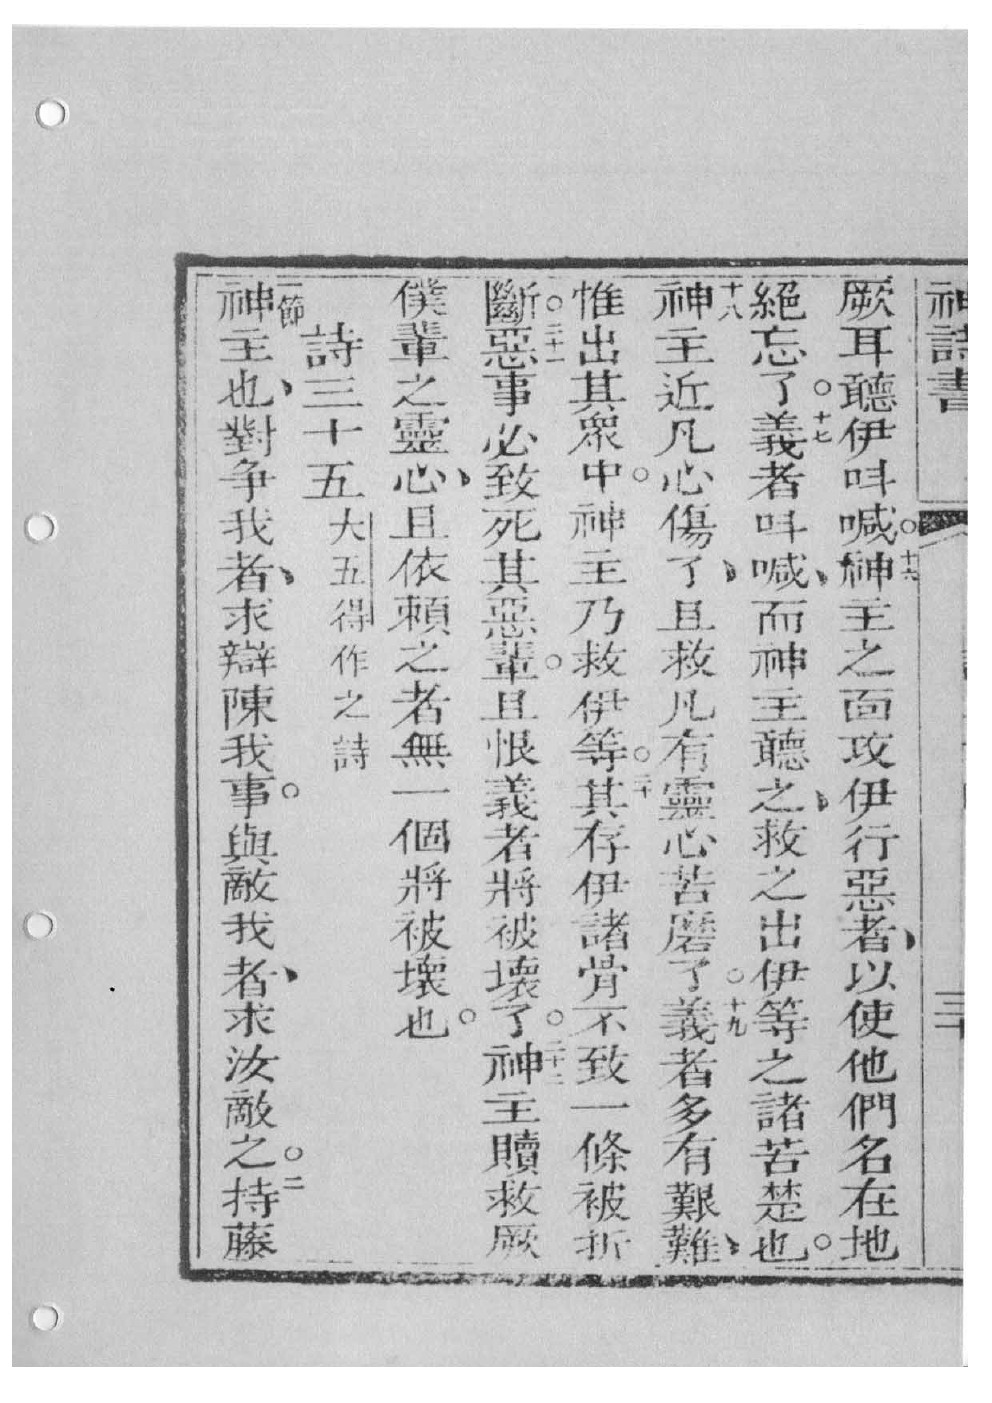 神詩書
厥耳聽伊呌喊○十六神主之面攻伊行惡者、以使他們名在地
絕忘了○十七義者呌喊、而神主聽之、救之出伊等之諸苦楚也○
十八神主近凡心傷了、且救凡有靈心苦磨了○十九義者多有艱難、
惟出其衆中○神主乃救伊等○二十其存伊諸骨不致一條被折
斷○二十一惡事必致死其惡輩○且恨義者將被壞了○二十二神主贖救厥
僕輩之靈心、且依頼之者無一個將被壞也○
詩三十五大五得作之詩
一節神主也、對争我者、求辯陳我事○與敵我者、求汝敵之○二持藤